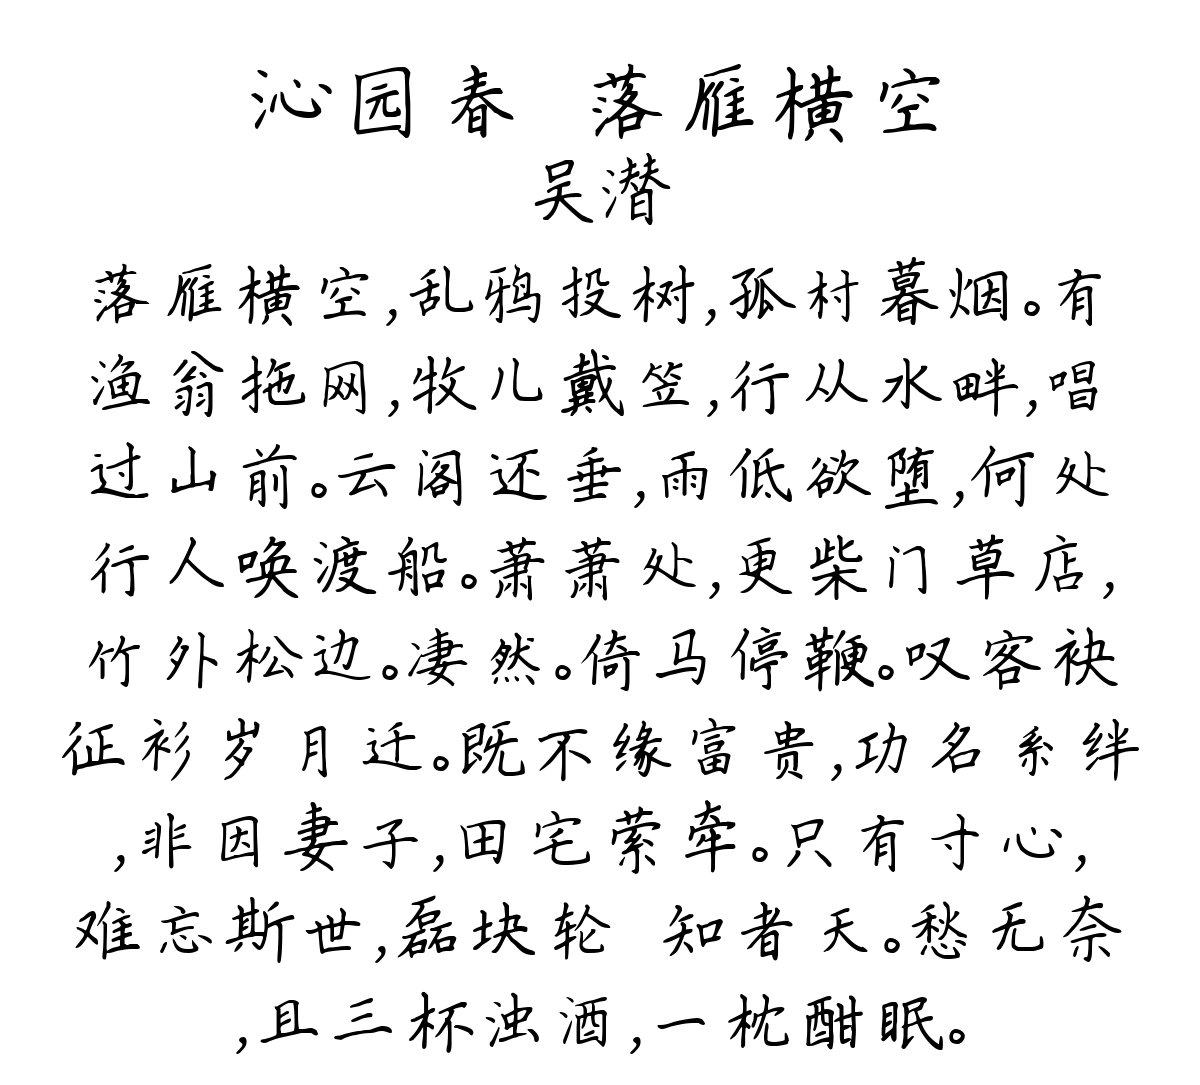 沁园春 落雁横空
吴潜
落雁横空,乱鸦投树,孤村暮烟。有
渔翁拖网,牧儿戴笠,行从水畔,唱
过山前。云阁还垂,雨低欲堕,何处
行人唤渡船。萧萧处,更柴门草店,
竹外松边。凄然。倚马停鞭。叹客袂
征衫岁月迁。既不缘富贵,功名系绊
,非因妻子,田宅萦牵。只有寸心,
难忘斯世,磊块轮 知者天。愁无奈
,且三杯浊酒,一枕酣眠。